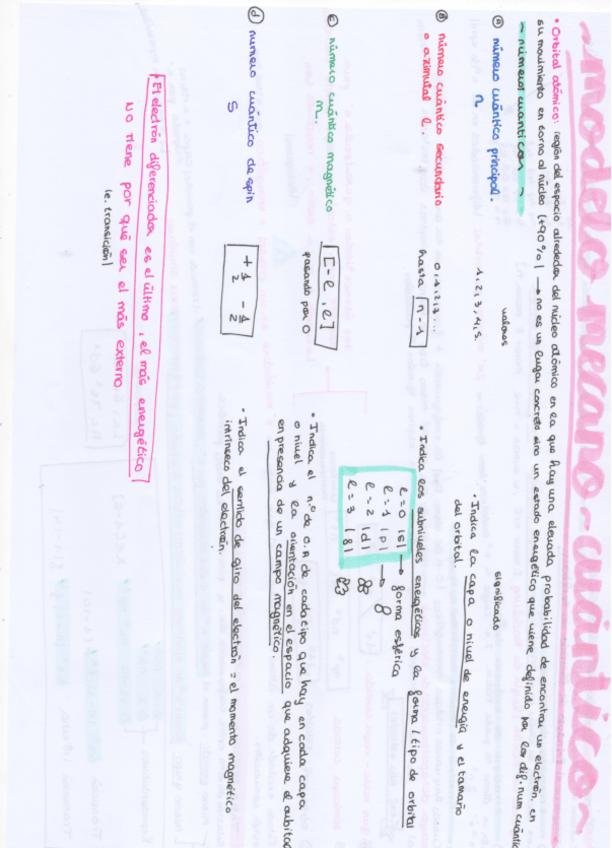 ~modelo mecano-cuántico~
• Orbital atómico: región del espacio alrededor del núcleo atómico en la que hay una elevada probabilidad de encontrar un electrón, en
su movimiento en torno al núcleo (+90%) → no es un lugar concreto sino un estado energético que viene definido por los dif. num cuántic
~ números cuánticos ~
valores significado
Ⓐ número cuántico principal. 1, 2, 3, 4, 5. • Indica la capa o nivel de energía y el tamaño
n del orbital.
Ⓑ número cuántico secundario 0, 1, 2, 3... • Indica los subniveles energéticos y la forma / tipo de orbital
o azimutal l. hasta n-1
l = 0 |s| → forma esférica
l = 1 |p| →
l = 2 |d|
l = 3 |f|
Ⓒ número cuántico magnético [-l, l] • Indica el n.º de O.A de cada tipo que hay en cada capa
m. pasando por 0 o nivel y la orientación en el espacio que adquiere el orbital
en presencia de un campo magnético.
ⓓ numero cuántico de spin +1/2 -1/2 • Indica el sentido de giro del electrón = el momento magnético
S intrínseco del electrón.
*El electrón diferenciador es el último, el más energético
No tiene por qué ser el más externo
(e. transición)